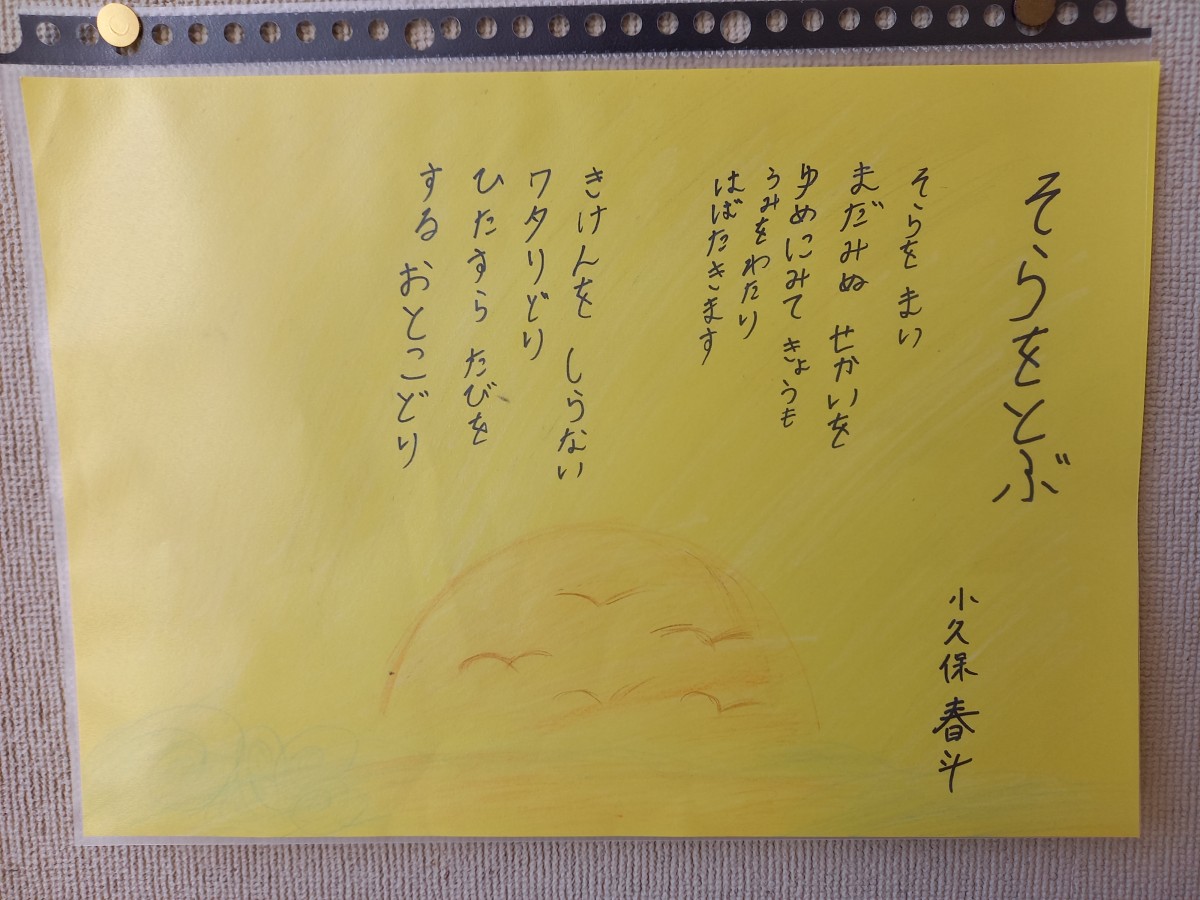 そらをとぶ
小久保春斗
そらを まい
まだみぬ せかいを
ゆめにみて きょうも
うみをわたり
はばたきます
きけんを しらない
ワタリどり
ひたすら たびを
する おとこどり